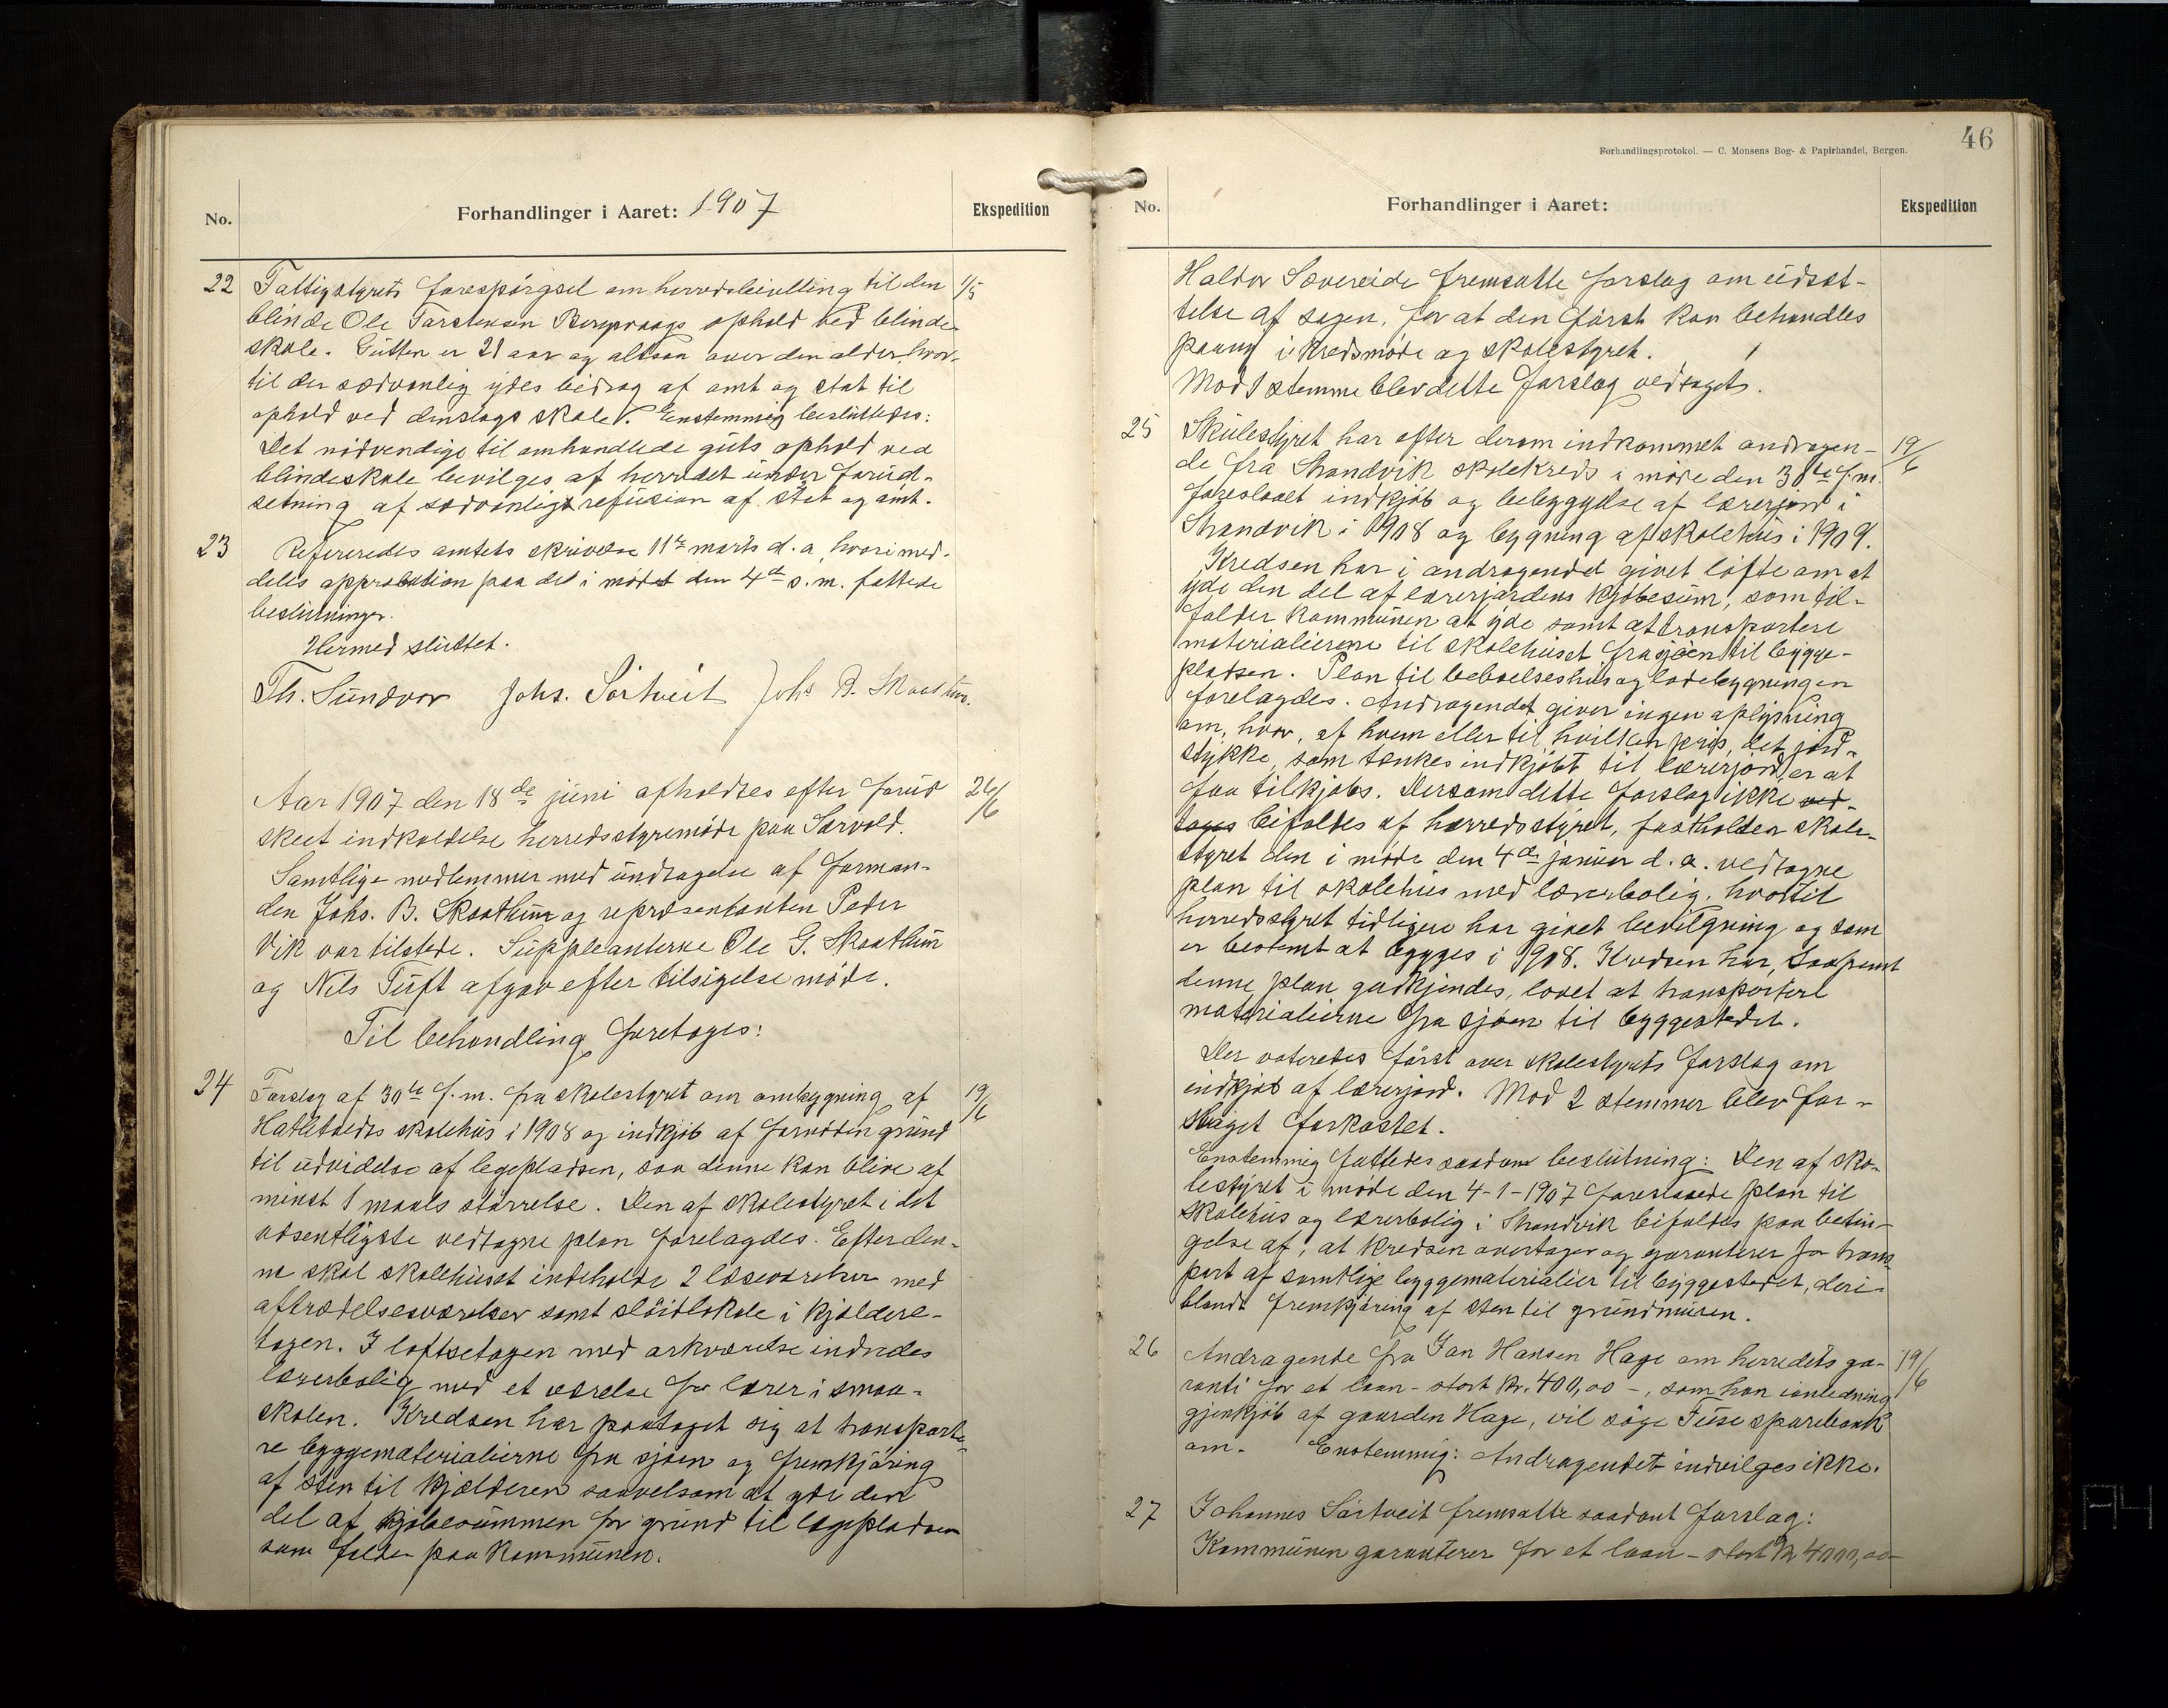 No.
Forhandlinger i Aaret: 1907
Ekspedition
22 Fattigstyrets forespørgsel om herredsbevilling til den 1/5
blinde Ole Torstensen ophold ved blinde-
skole. Gutten er 21 aar og altsaa over den alder, hvor-
til der sædvanlig ydes bidrag af amt og stat til
ophold ved denslags skoler. Enstemmig besluttedes:
Det nødvendige til omhandlede guts ophold ved
blindeskole bevilges af herredet under forud-
setning af sædvanlig refusion af stat og amt.
23 Refereredes amtets skrivelse 11te marts d.a., hvori med-
deles approbation paa det i mødet den 4de s.m. fattede
beslutninger.
Hermed sluttet.
Th. Sundvor Johs. Sörtveit Johs B. Skaathun.
Aar 1907 den 18de juni afholdtes efter forud 26/6
skeet indkaldelse herredsstyremøde paa Sævold.
Samtlige medlemmer med undtagelse af forman-
den Johs. B. Skaathun og repræsentanten Peder
Vik var tilstede. Suppleanterne Ole G. Skaathun
og Nils Tuft afgav efter tilsigelse møde.
Til behandling foretoges:
24 Forslag af 30te f.m. fra skolestyret om ombygning af 19/6
Hatletvedts skolehus i 1908 og indkjøb af fornøden grund
til udvidelse af legepladsen, saa denne kan blive af
minst 1 maals størrelse. Den af skolestyret i det
væsentligste vedtagne plan forelagdes. Efter den-
ne skal skolehuset indeholde 2 læseværelser med
aftrædelsesværelser samt slöidlokale i kjældere-
tagen. I loftsetagen med arkværelse indredes
lærerbolig med et værelse for lærer i smaa-
skolen. Kredsen har paataget sig at transporte-
re byggematerialierne fra sjøen og fremkjøring
af sten til kjælderen saavelsom at yde den
del af kjøbesummen for grund til legepladsen
som falder paa kommunen.
46
Forhandlingsprotokol. — C. Monsens Bog- & Papirhandel, Bergen.
No.
Forhandlinger i Aaret:
Ekspedition
Haldor Sævereide fremsatte forslag om udsæt-
telse af sagen, for at den først kan behandles
paany i kredsmøde og skolestyret.
Mod 1 stemme blev dette forslag vedtaget.
25 Skulestyret har efter derom indkommet andragen- 19/6
de fra Strandvik skolekreds i møde den 30te f.m.
foreslaaet indkjøb og bebyggelse af lærerjord i
Strandvik i 1908 og bygning af skolehus i 1909.
Kredsen har i andragendet givet løfte om at
yde den del af lærerjordens kjøbesum, som til-
falder kommunen at yde samt at transportere
materialierne til skolehuset fra sjøen til bygge-
pladsen. Plan til beboelseshus og ladebygningen
forelagdes. Andragendet giver ingen oplysning
om, hvor, af hvem eller til hvilken pris, det jord-
stykke, som tænkes indkjøbt til lærerjord, er at
faa tilkjøbs. Dersom dette forslag ikke ved-
tages bifaldes af herredsstyret, fastholder skole-
styret den i møde den 4de januar d.a. vedtagne
plan til skolehus med lærerbolig, hvortil
herredsstyret tidligere har givet bevilgning og som
er bestemt at bygges i 1908. Kredsen har, saafremt
denne plan godkjendes, lovet at transportere
materialierne fra sjøen til byggestedet.
Der voteredes først over skolestyrets forslag om
indkjøb af lærerjord. Mod 2 stemmer blev for-
slaget forkastet.
Enstemmig fattedes saadan beslutning: Den af sko-
lestyret i møde den 4-1-1907 foreslaaede plan til
skolehus og lærerbolig i Strandvik bifaldes paa betin-
gelse af, at kredsen overtager og garanterer for trans-
port af samtlige byggematerialier til byggestedet, deri-
blandt fremkjøring af sten til grundmuren.
26 Andragende fra Jan Hansen Hage om herredets ga- 19/6
ranti for et laan - stort kr. 400,00 -, som han i anledning
gjenkjøb af gaarden Hage, vil søge Fuse sparebank
om. Enstemmig: Andragendet indvilges ikke.
27 Johannes Sørtveit fremsatte saadant forslag:
Kommunen garanterer for et laan - stort kr 4000,00 -